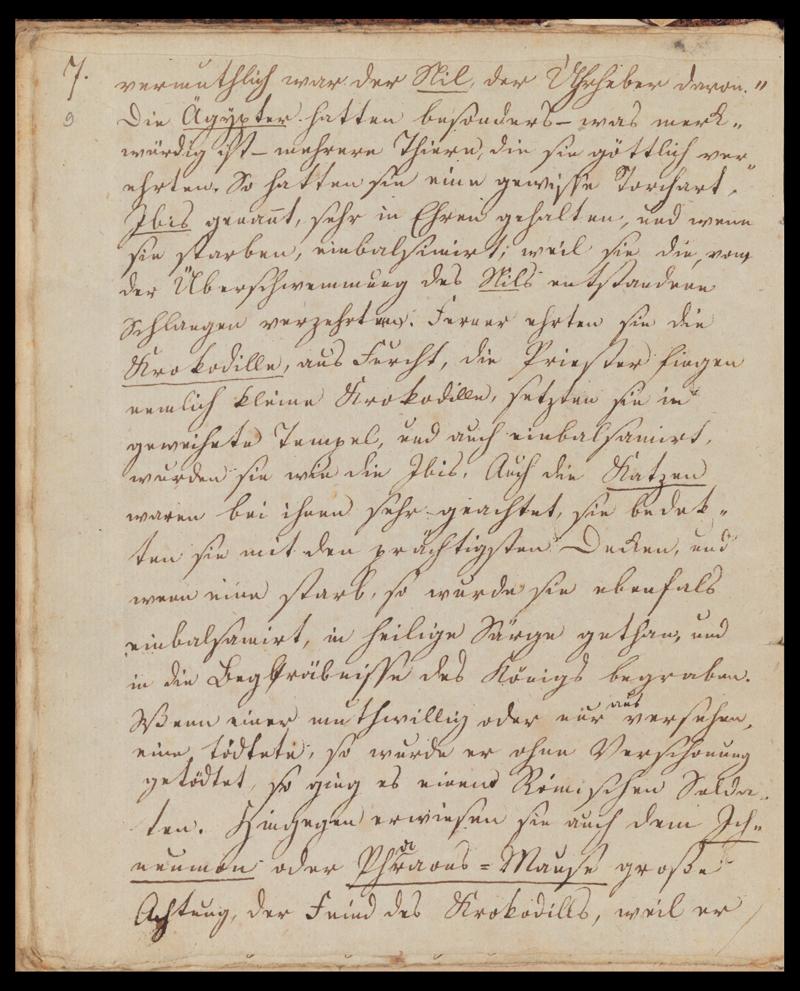 7.
vermuthlich war der Nil, der Uhrheber davon."
9
Die Ägÿpter hatten besonders – was merk„
würdig ist – mehrere Thiere, die sie göttlich ver„
ehrten. So hatten sie eine gewisse Torchart,
Ibis genañt, sehr in Ehren gehalten, und wenn
sie starben, einbalsimirt; weil sie die, vom
der Überschwemmung des Nils entstandene
Schlangen verzehrten. Ferner ehrten sie die
Krokodille, aus Furcht, die Priester fingen
nemlich kleine Krokodille, setzten sie in
geweihete Tempel, und auch einbalsamirt,
wurden sie wie die Ibis. Auch die Katzen
waren bei ihnen sehr geachtet, sie bedek„
ten sie mit den prächtigsten Decken, und
wenn eine starb, so wurde sie ebenfals
einbalsamirt, in heilige Särge gethan, und
in die Begräbnisse des Königs begraben.
Wenn einer muthwillig oder nur aus versehen,
eine tödtete, so wurde er ohne Verschonung
getödtet, so ging es einem Römischen Solda„
ten. Hingegen erwiesen sie auch dem Ich„
neumon oder Pharaons=Mause große
Achtung, der Feind des Krokodills, weil er